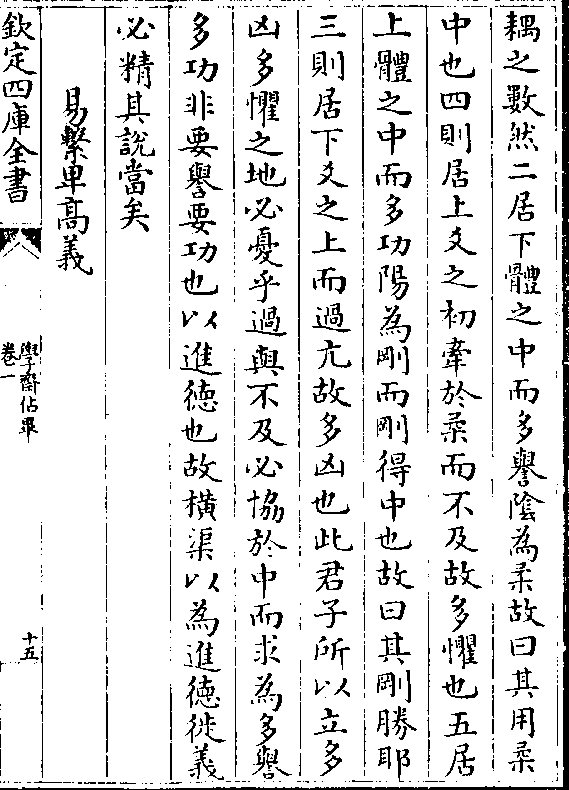 耦之數然二居下體之中而多譽陰為柔故曰其用柔
中也四則居上爻之初牽於柔而不及故多懼也五居
上體之中而多功陽為剛而剛得中也故曰其剛勝耶
三則居下爻之上而過亢故多凶也此君子所以立多
凶多懼之地必憂乎過與不及必協於中而求為多譽
多功非要譽要功也以進德也故橫渠以為進德徙義
必精其說當矣
易繫卑高義
欽定四庫全書
學齋佔畢
卷一
十五